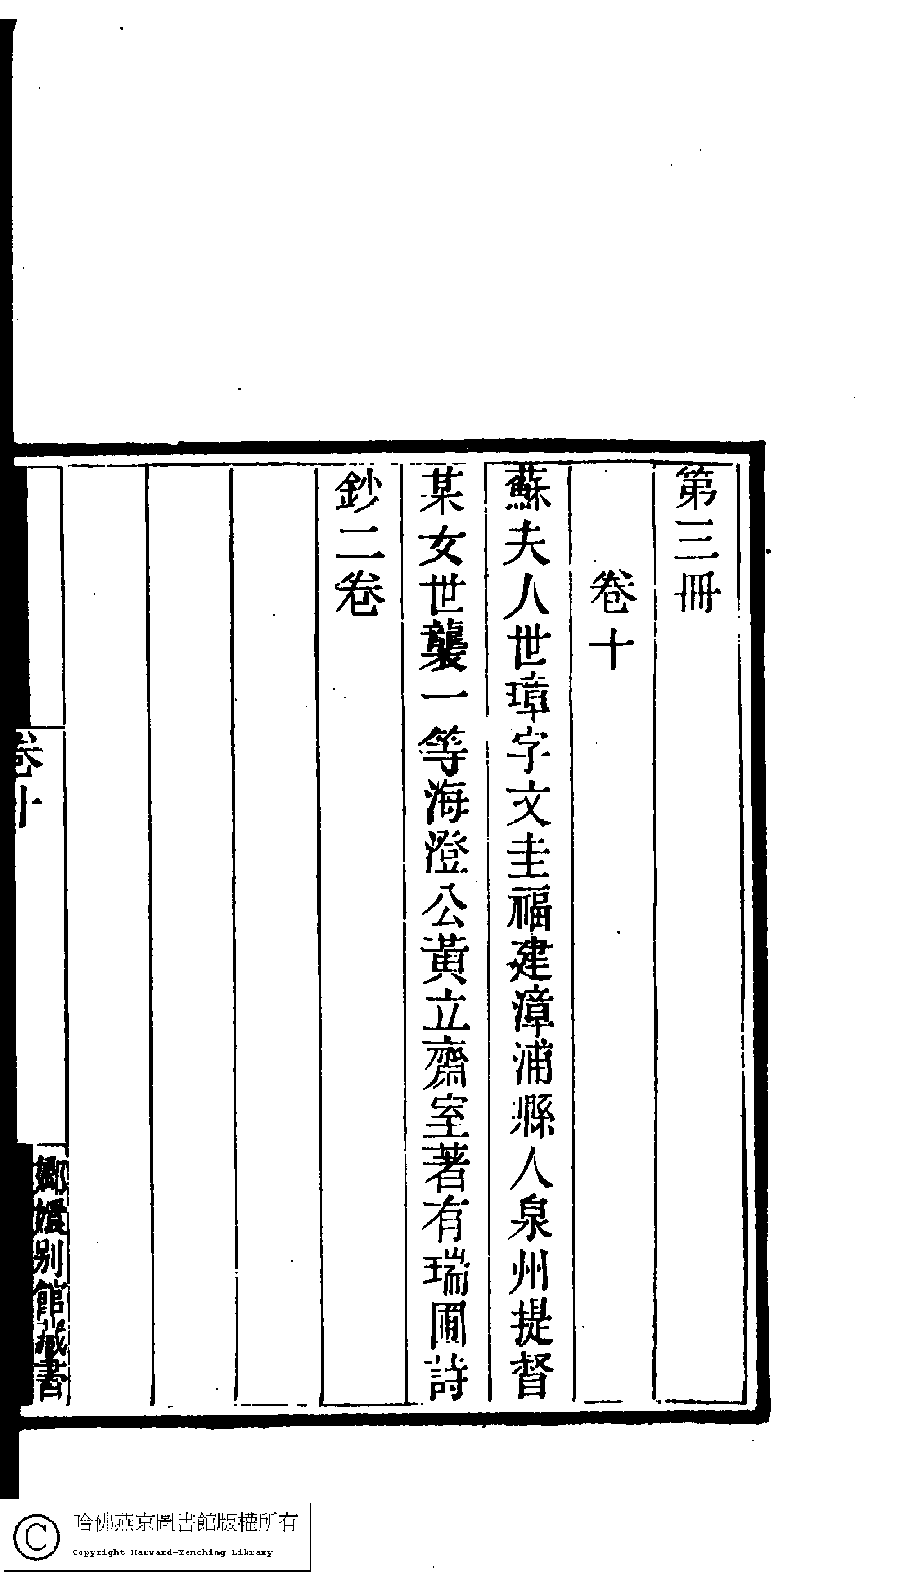 第三冊
卷十
蘇夫人世璋字文圭福建漳浦縣人泉州提督
某女世襲一等海澄公黃立齋室著有瑞圃詩
鈔二卷
卷十
嫏嬛別館藏書
哈佛燕京圖書館版權所有
Copyright Harvard-Yenching Library